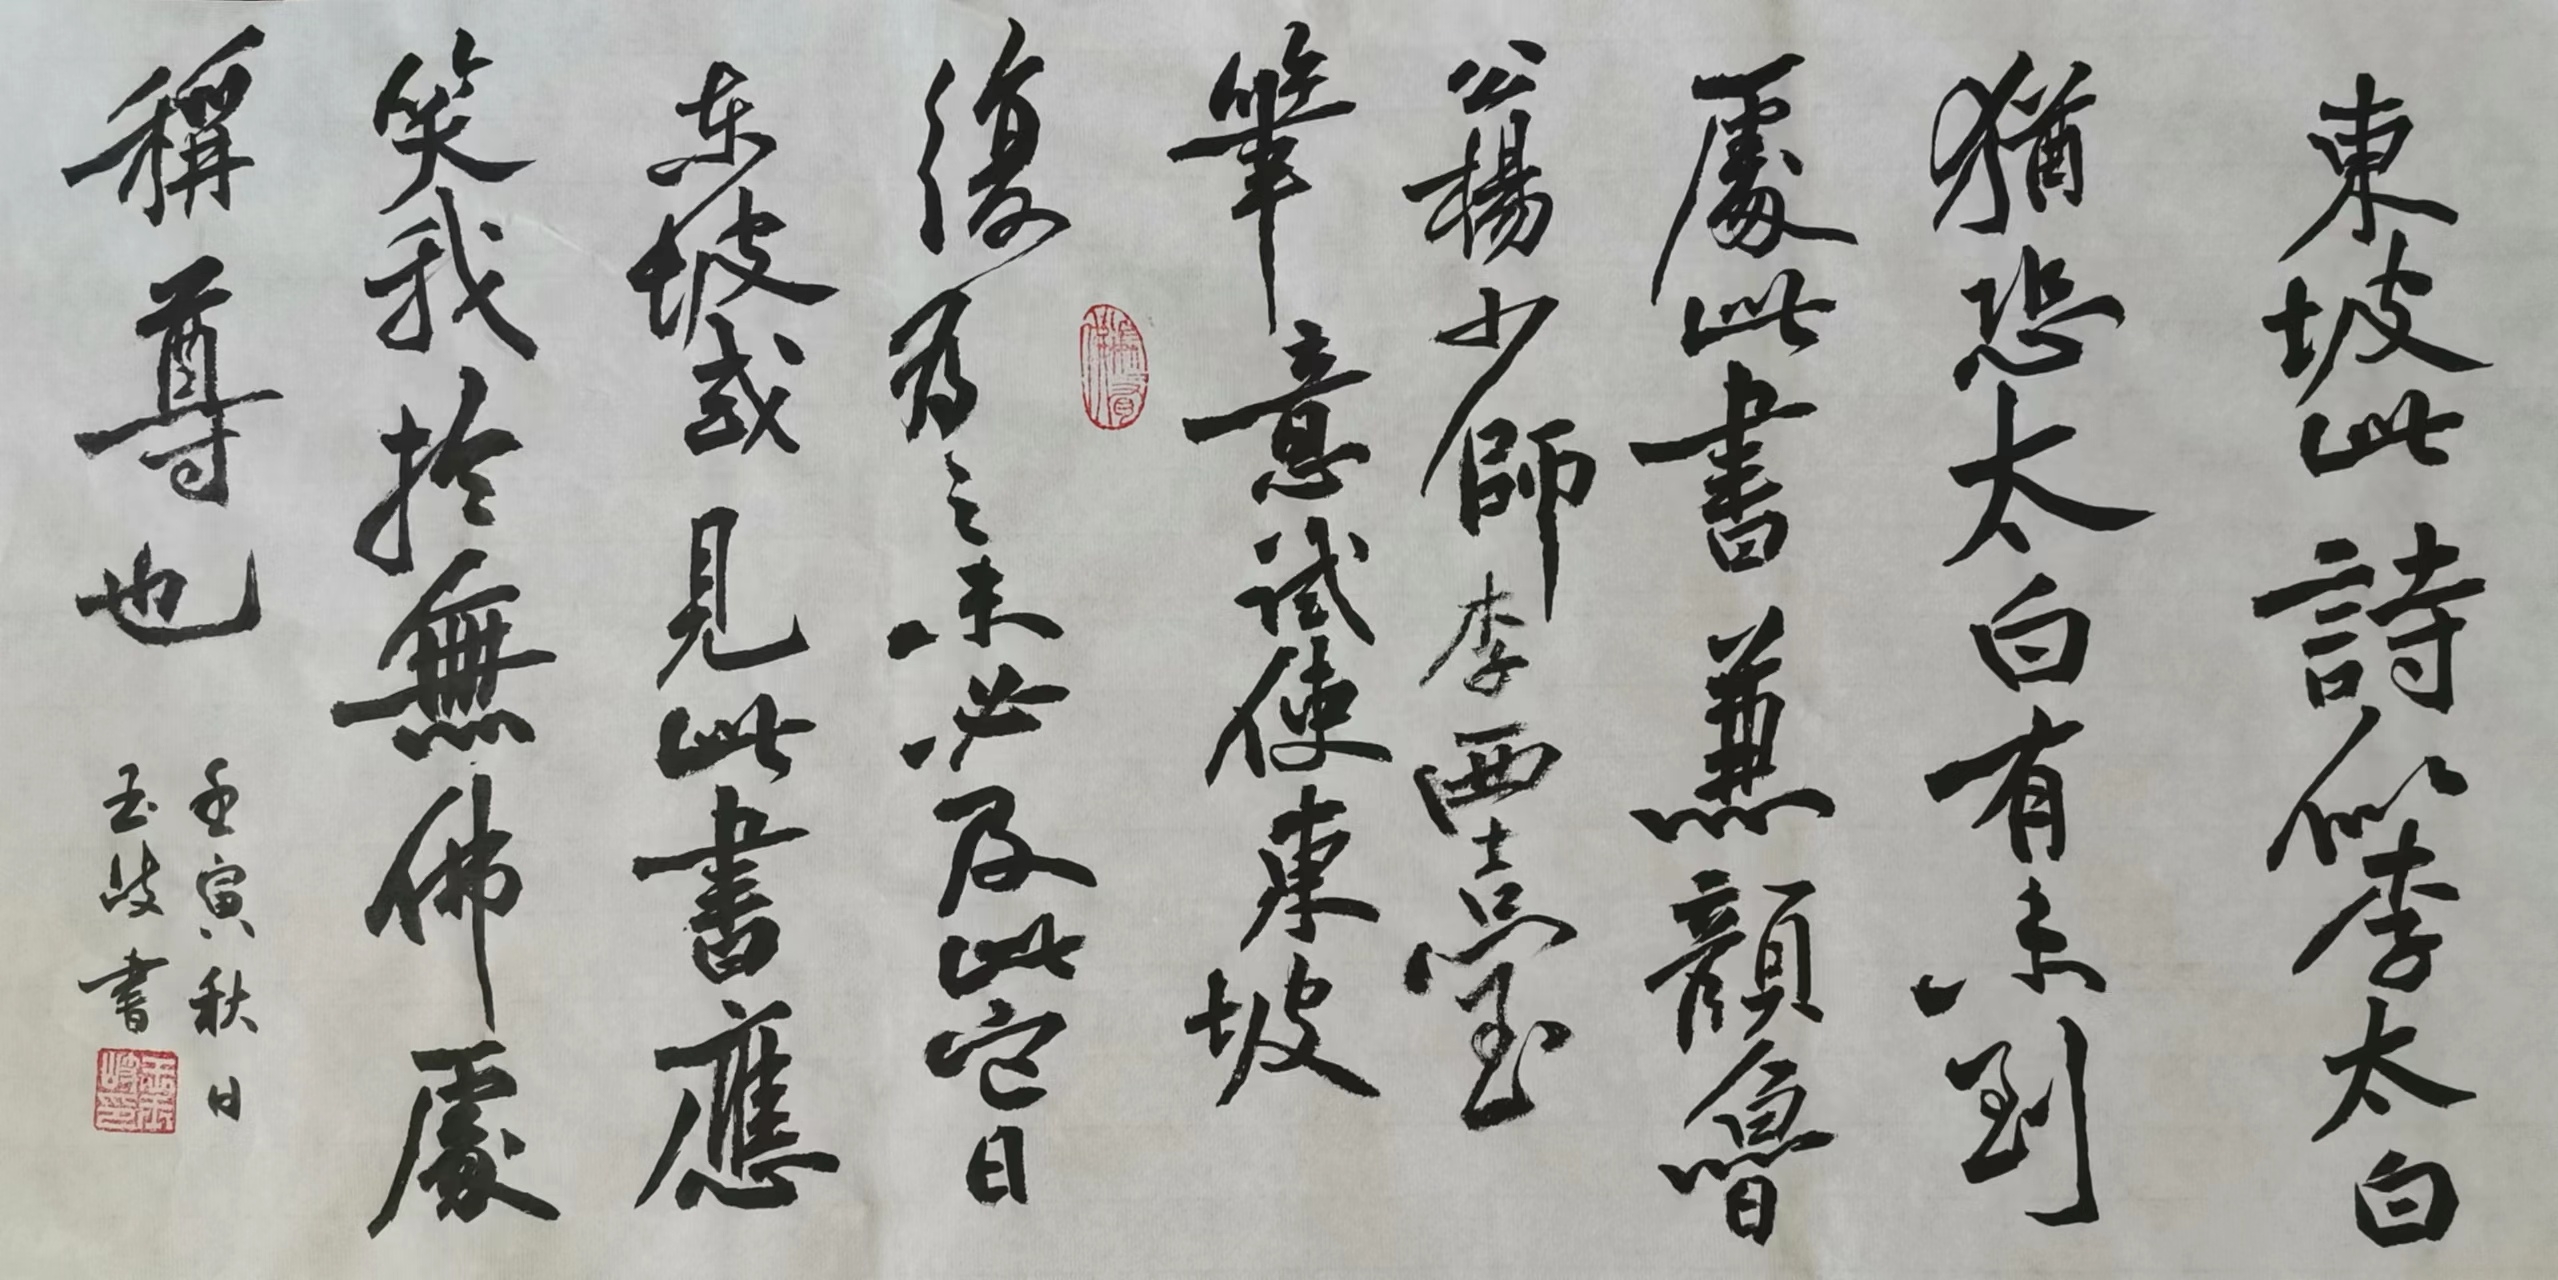 東坡此詩似李太白
猶恐太白有未到
處此書兼顏魯
公楊少師李西臺
筆意試使東坡
復為之未必及此它日
东坡或見此書應
笑我於無佛處
稱尊也
壬寅秋日
玉岐書